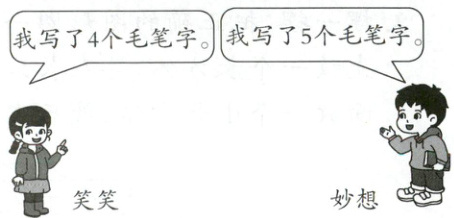 我写了4个毛笔字。
我写了5个毛笔字。
笑笑
妙想